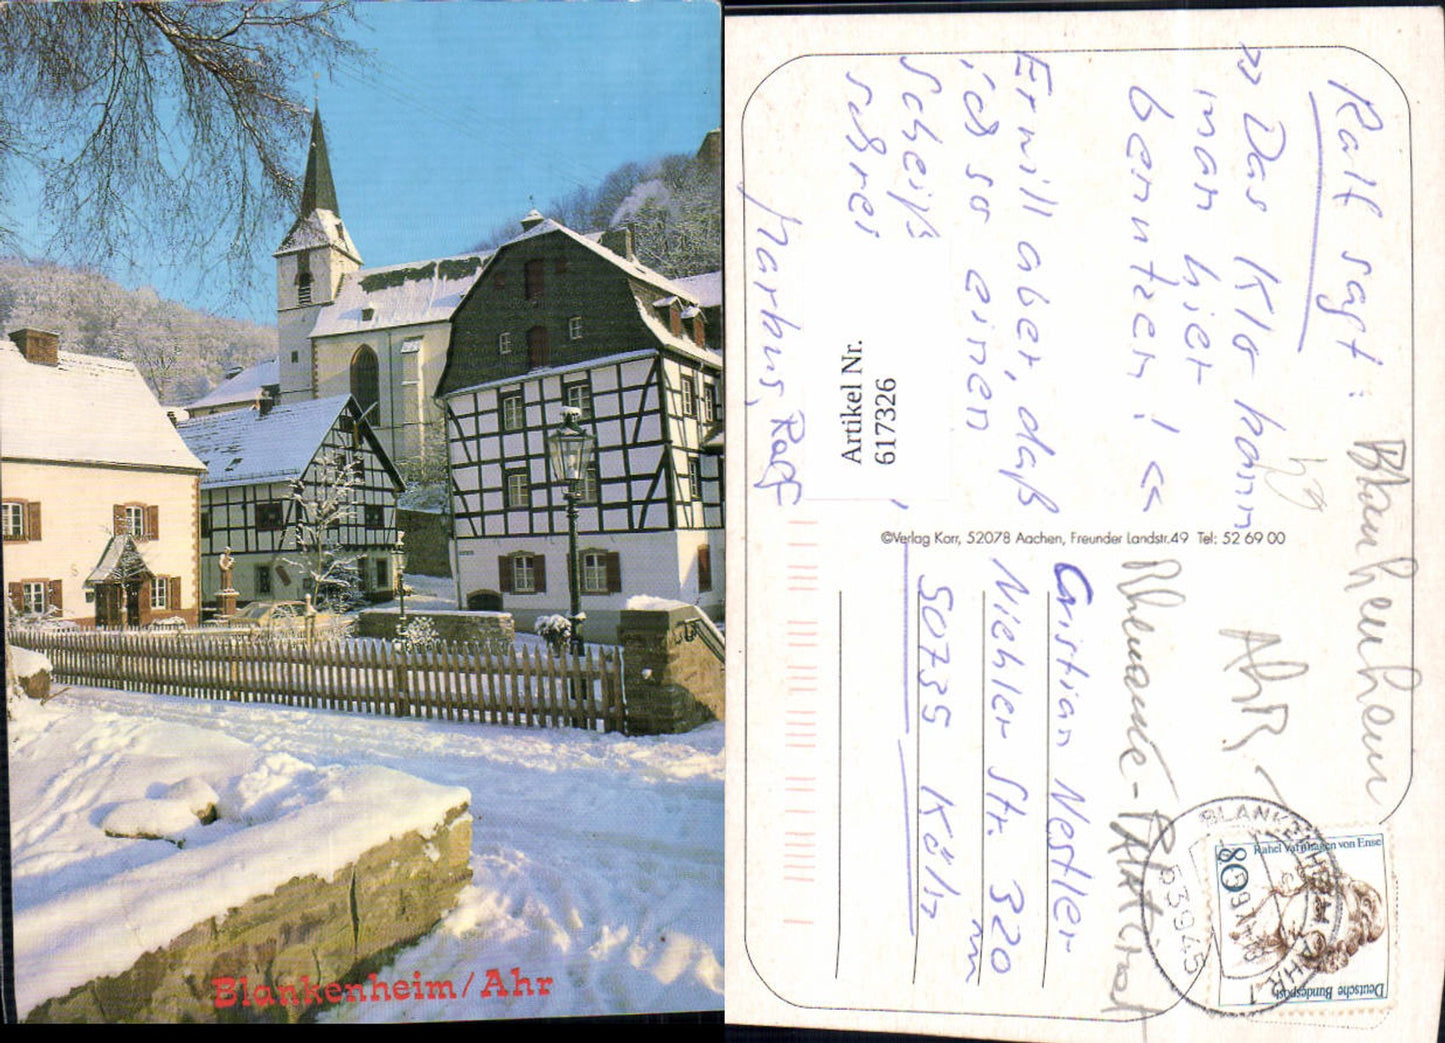 Blankenheim/Ahr
Ralf sagt:
»Das Klo kann
man hier
benutzen! «
Er will aber, daß
ich so einen
Scheiß
schrei
Markus, Ralf
Artikel Nr.
617326
©Verlag Korr, 52078 Aachen, Freunder Landstr.49 Tel: 52 69 00
Cristian Nestler
Niehler Str. 320
50735 Köln
Blankenheim
Ahr
BLANKENHEIM, AHR 1
53945
Rahel Varnhagen von Ense
80
Deutsche Bundespost